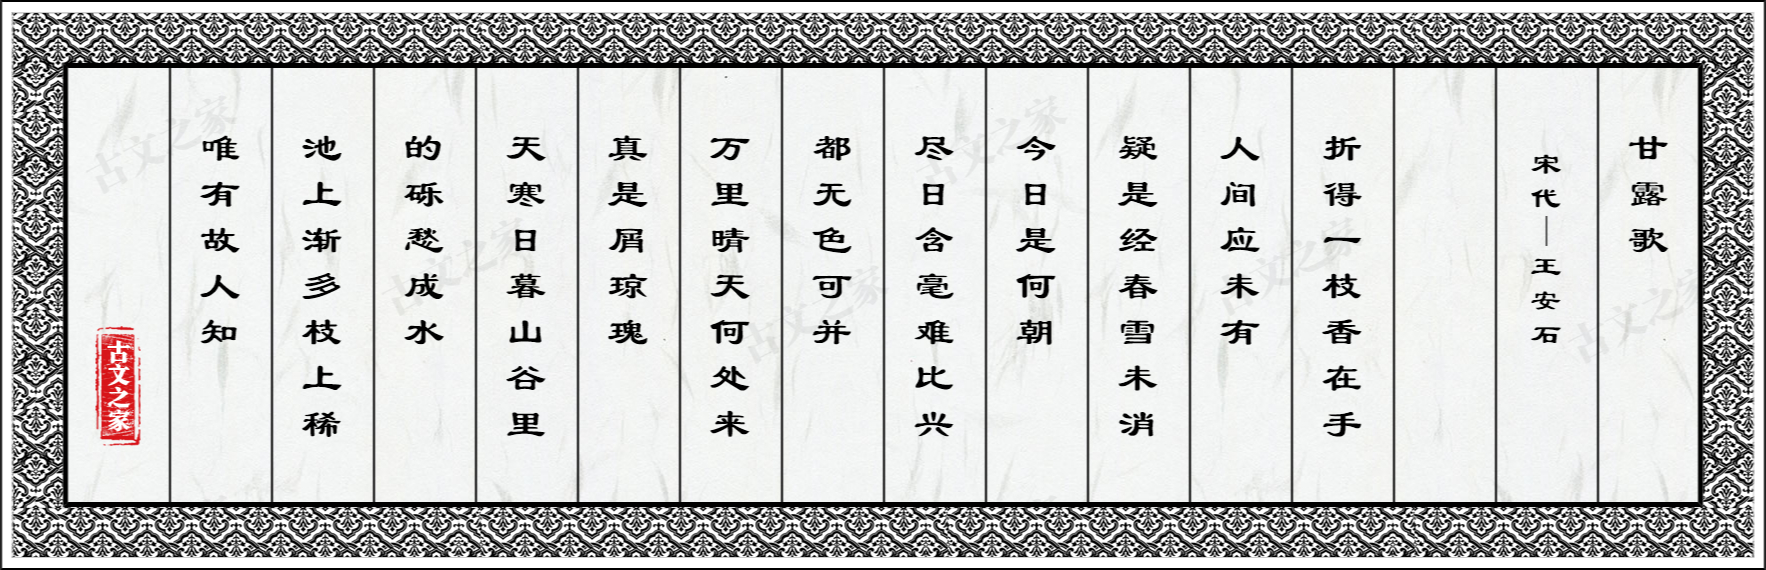 甘露歌
宋代—王安石
折得一枝香在手
人间应未有
疑是经春雪未消
今日是何朝
尽日含毫难比兴
都无色可并
万里晴天何处来
真是屑琼瑰
天寒日暮山谷里
的砾愁成水
池上渐多枝上稀
唯有故人知
古文之家